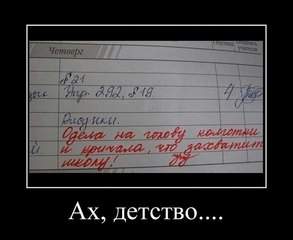 Четверг
§ 21
Упр. 292, § 19
4
Рисунки.
Одела на голову колготки
и кричала, что захватит
школу!
Ах, детство....